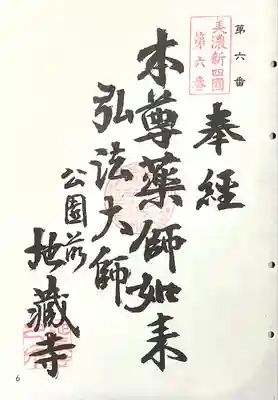 第六番
美濃新四國
第六番
奉経
本尊薬師如来
弘法大師
公園前
地蔵寺
6